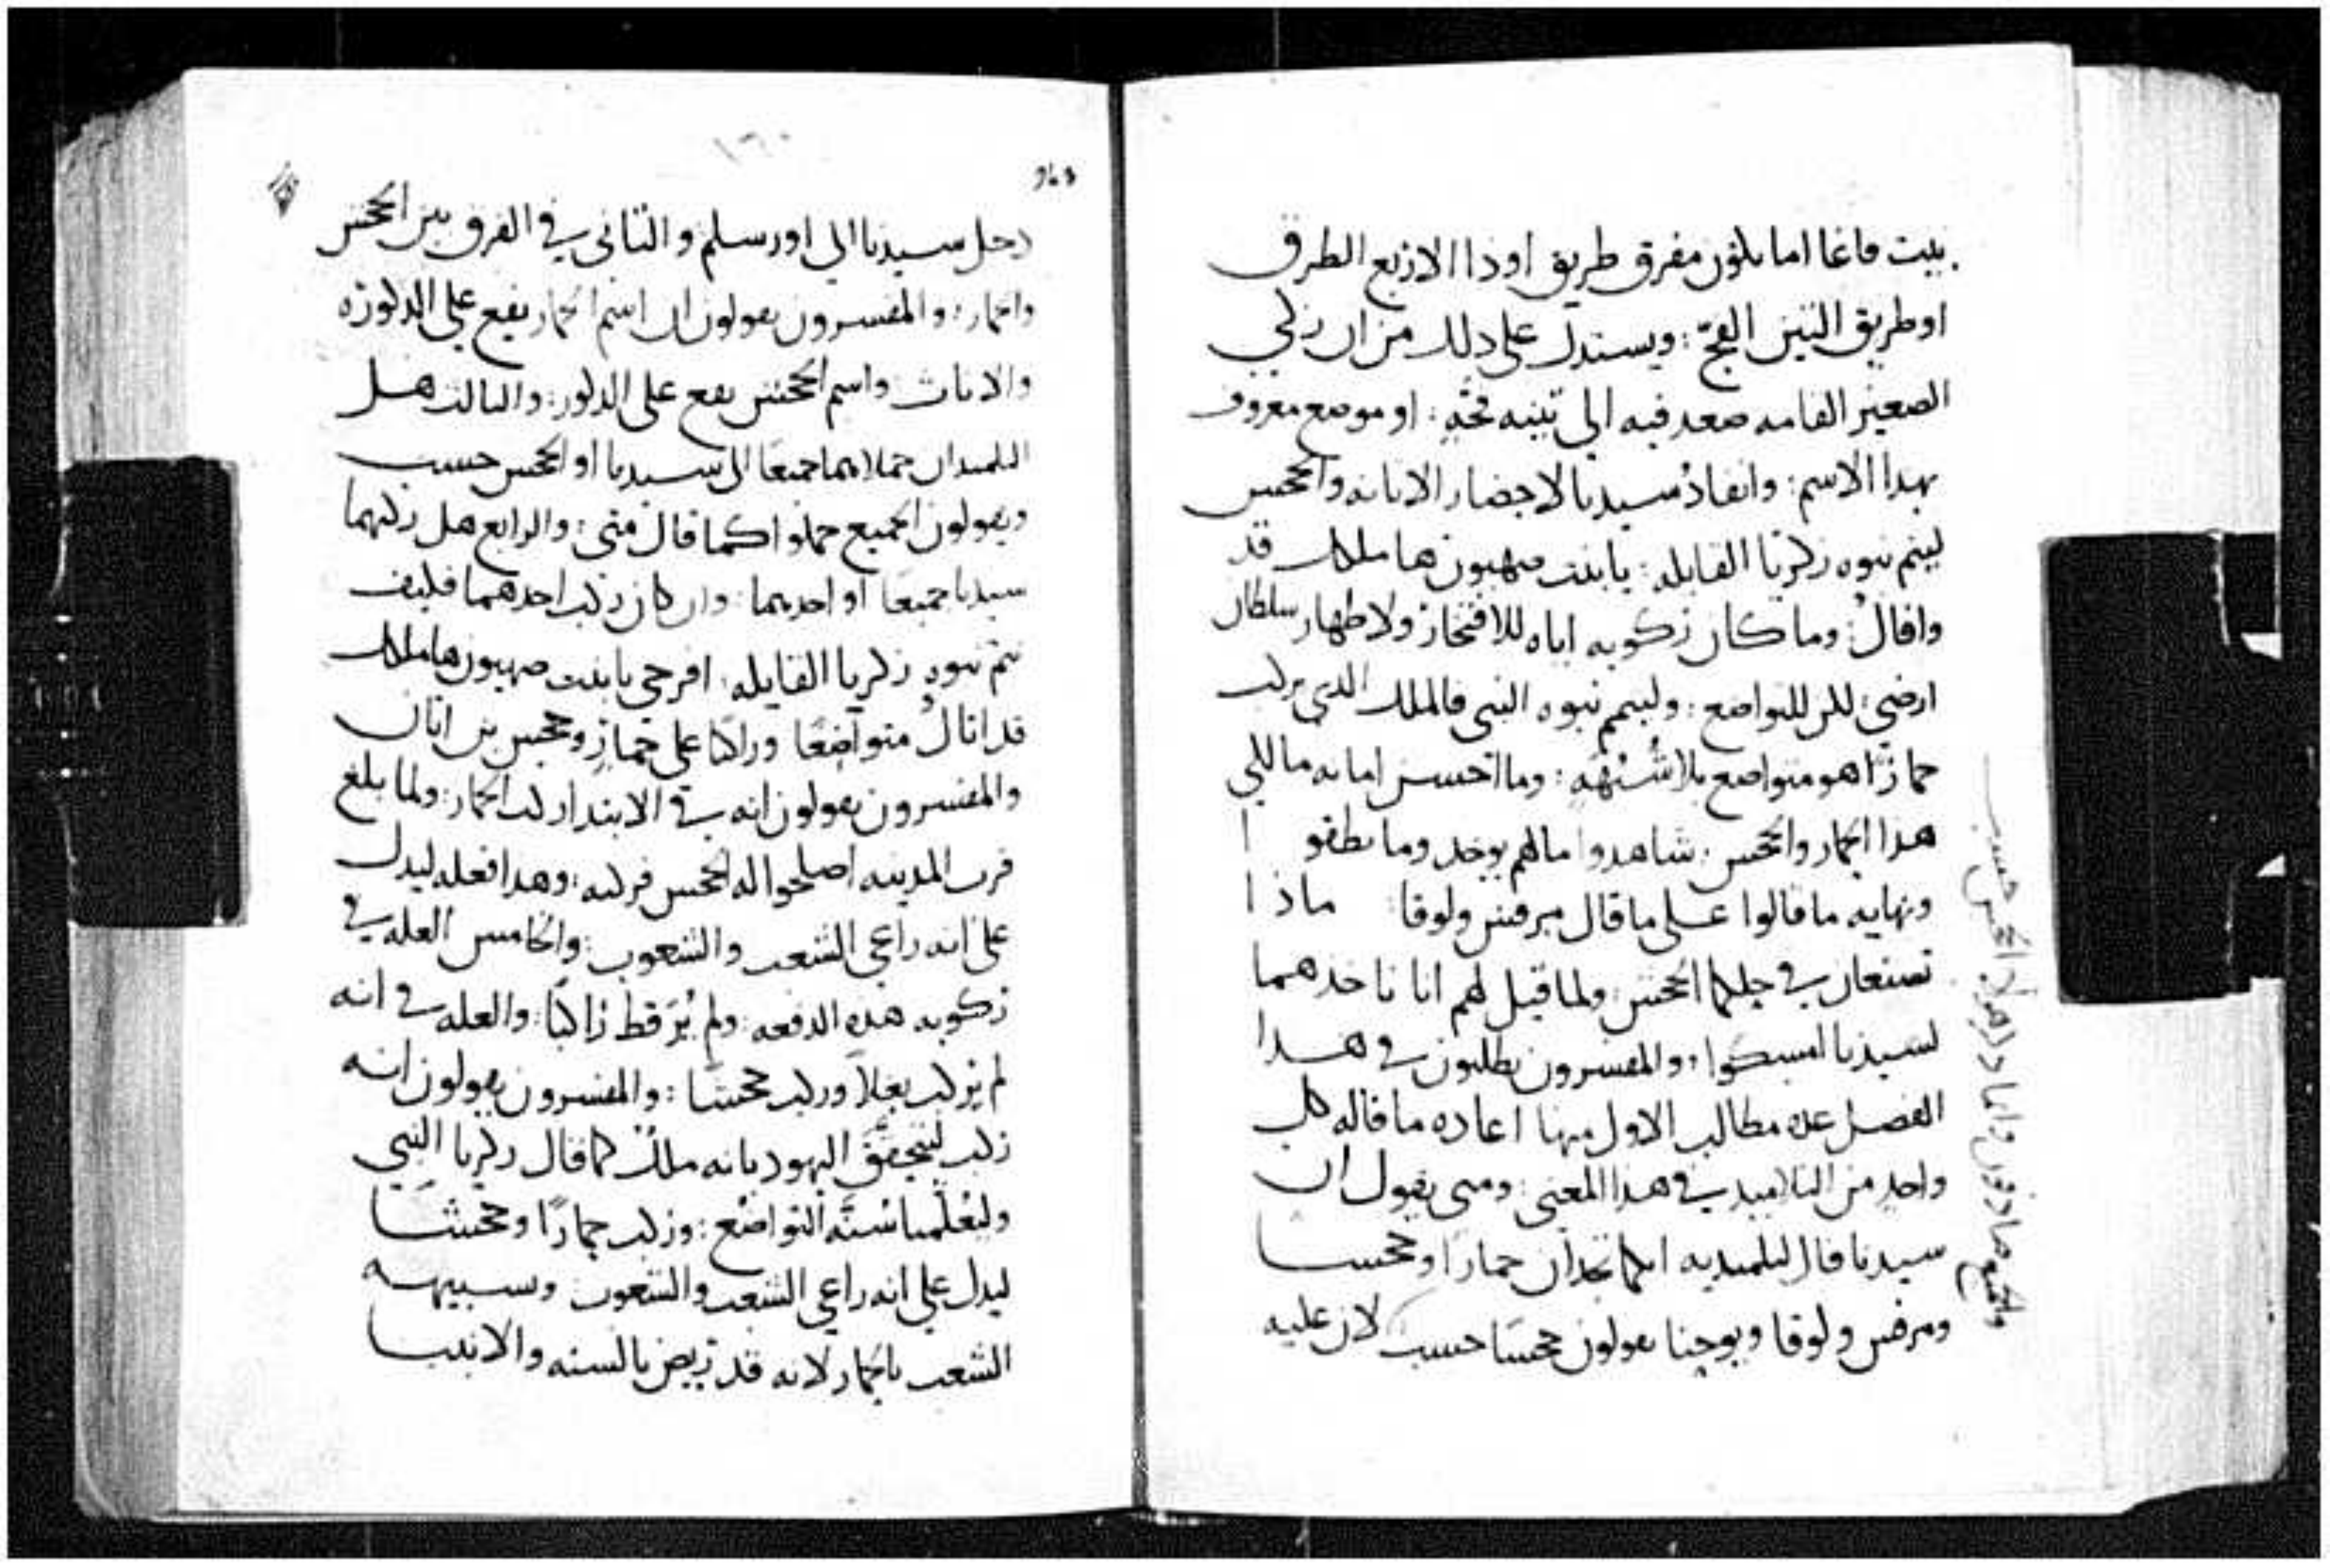 بيت فاغا اما يكون مفرق طريق او ذا الاربع الطرق
او طريق التين الفج: ويستدل على ذلك من ان زكي
الصغير القامه صعد فيه الى تينه فجّه: او موضع معروف
بهذا الاسم: وانفاذ سيدنا لاحضار الاتانه والجحش
ليتم نبوه زكريا القايله: يا بنت صهيون ها ملكك قد
وافاك: وما كان ركوبه اياه للافتخار ولاظهار سلطان
ارضي: لكن للتواضع: وليتمم نبوه النبي فالملك الذي يركب
حمارًا هو متواضع بلا شبهه: وما احسن امانه مالكي
هذا الحمار والجحش: شاهدوا مالهم يوخد وما نطقوا
ونهايه ما قالوا على ما قال مرقس ولوقا: ماذا
تصنعان في حلكما الجحش: ولما قيل لهم انا ناخدهما
لسيدنا امسكوا: والمفسرون يطلبون في هذا
الفصل عده مطالب الاول منها اعاده ما قاله كل
واحد من التلاميد في هذا المعنى: ومتى يقول ان
سيدنا قال لتلميديه انكما تجدان حمارًا وجحشا
ومرقس ولوقا ويوحنا يقولون جحشا حسب لان عليه
والجميع صادقون وانما ذكروا الجحش حسب
دخل سيدنا الى اورسلم والثاني في الفرق بين الجحش
والحمار: والمفسرون يقولون ان اسم الحمار يقع على الدكوره
والاناث واسم الجحش يقع على الدكور: والثالث هل
التلميدان حملاهما جميعًا الى سيدنا او الجحش حسب
ويقولون الجميع حملوا كما قال متى: والرابع هل ركبهما
سيدنا جميعًا او احدهما: وان كان ركب احدهما فكيف
يتم نبوه زكريا القايله: افرحي يا بنت صهيون ها ملكك
قد اتاك متواضعًا وراكبًا على حمارٍ وجحش بن اتان
والمفسرون يقولون انه في الابتدا ركب الحمار: ولما بلغ
قرب المدينه اصلحوا له الجحش فركبه: وهدا فعله ليدل
على انه راعي الشعب والشعوب: والخامس العله في
ركوبه هذه الدفعه: ولم يُرَ قط راكبًا: والعله في انه
لم يركب بغلًا وركب جحشًا: والمفسرون يقولون انه
ركب ليتحقق اليهود بانه ملك كما قال زكريا النبي
وليعلمنا سُنّة التواضع: وركب حمارًا وجحشًا
ليدل على انه راعي الشعب والشعوب وسبيهه
الشعب بالحمار لانه قد تريض بالسنه والانبيا